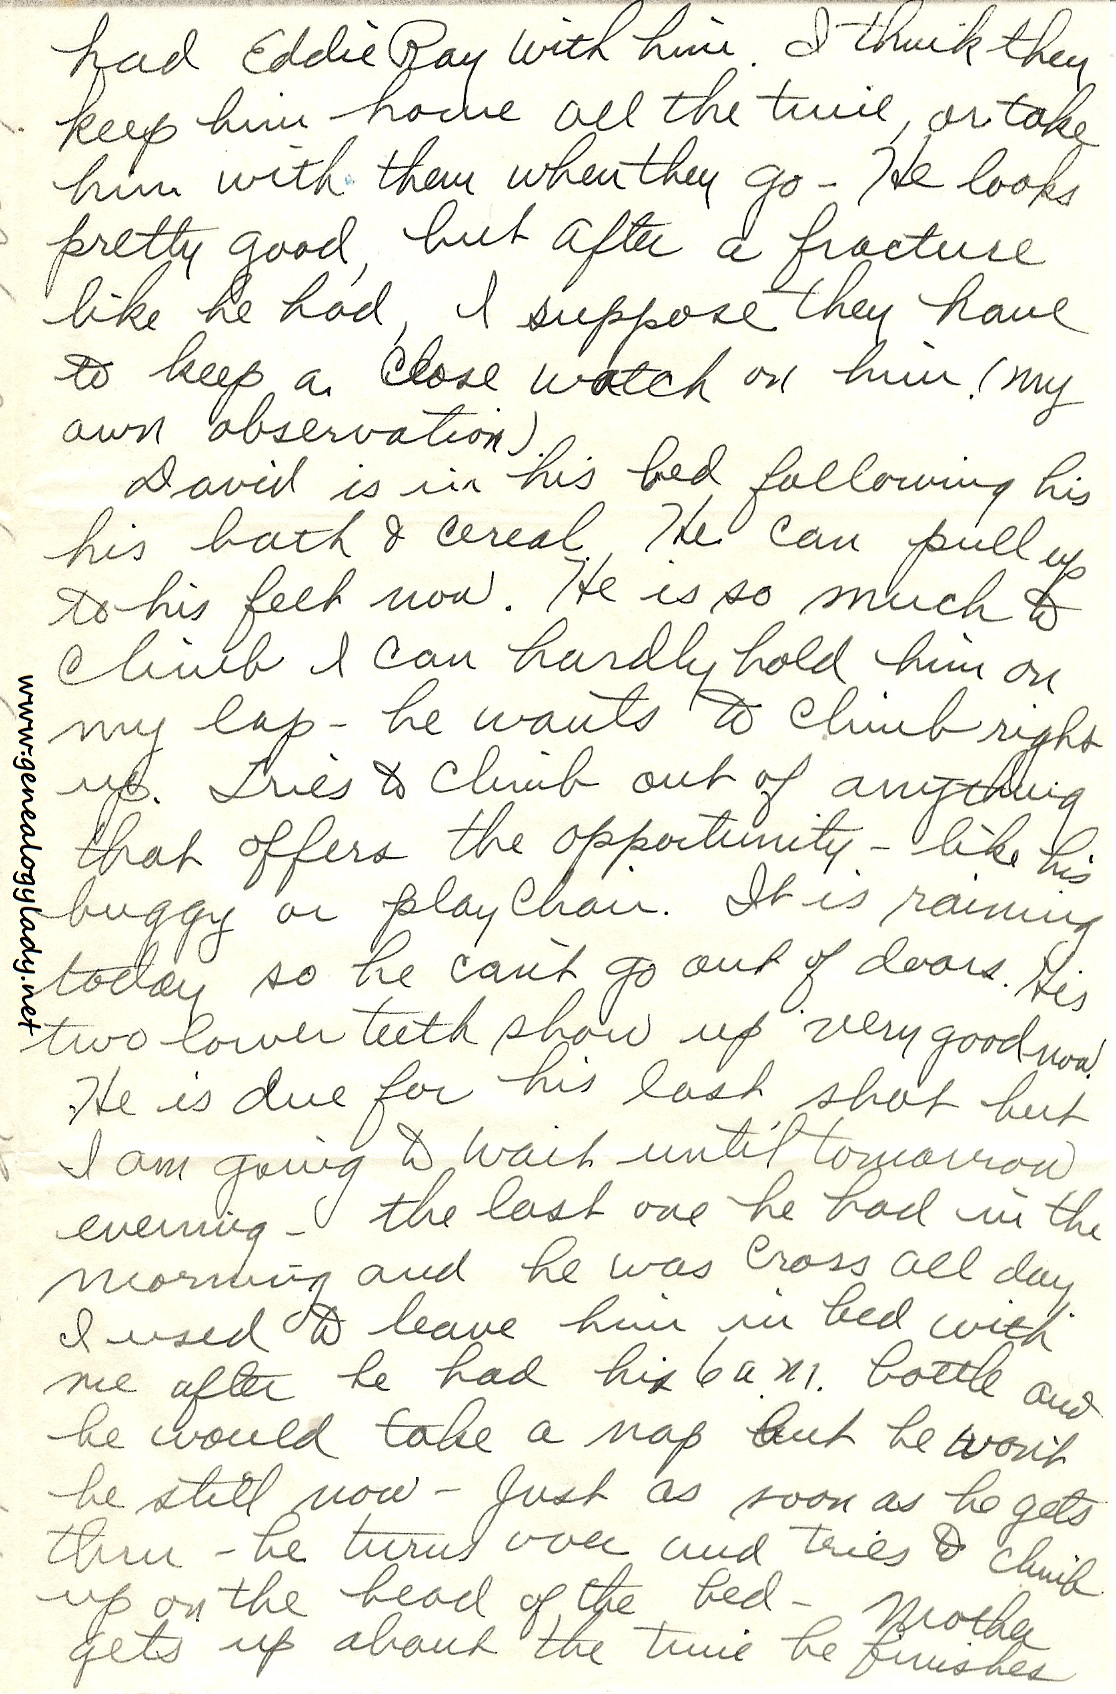 had Eddie Ray with him. I think they
keep him home all the time, or take
him with them when they go - He looks
pretty good, but after a fracture
like he had, I suppose they have
to keep a close watch on him (my
own observation).
David is in his bed following his
his bath & cereal. He can pull up
to his feet now. He is so much to
climb I can hardly hold him on
my lap - he wants to climb right
up. Tries to climb out of anything
that offers the opportunity - like his
buggy or play chair. It is raining
today so he can't go out of doors. His
two lower teeth show up very good now.
He is due for his last shot but
I am going to wait until tomorrow
evening - the last one he had in the
morning and he was cross all day.
I used to leave him in bed with
me after he had his 6 a.m. bottle and
he would take a nap but he won't
be still now - Just as soon as he gets
thru - he turns over and tries to climb
up on the head of the bed - Mother
gets up about the time he finishes
www.genealogylady.net